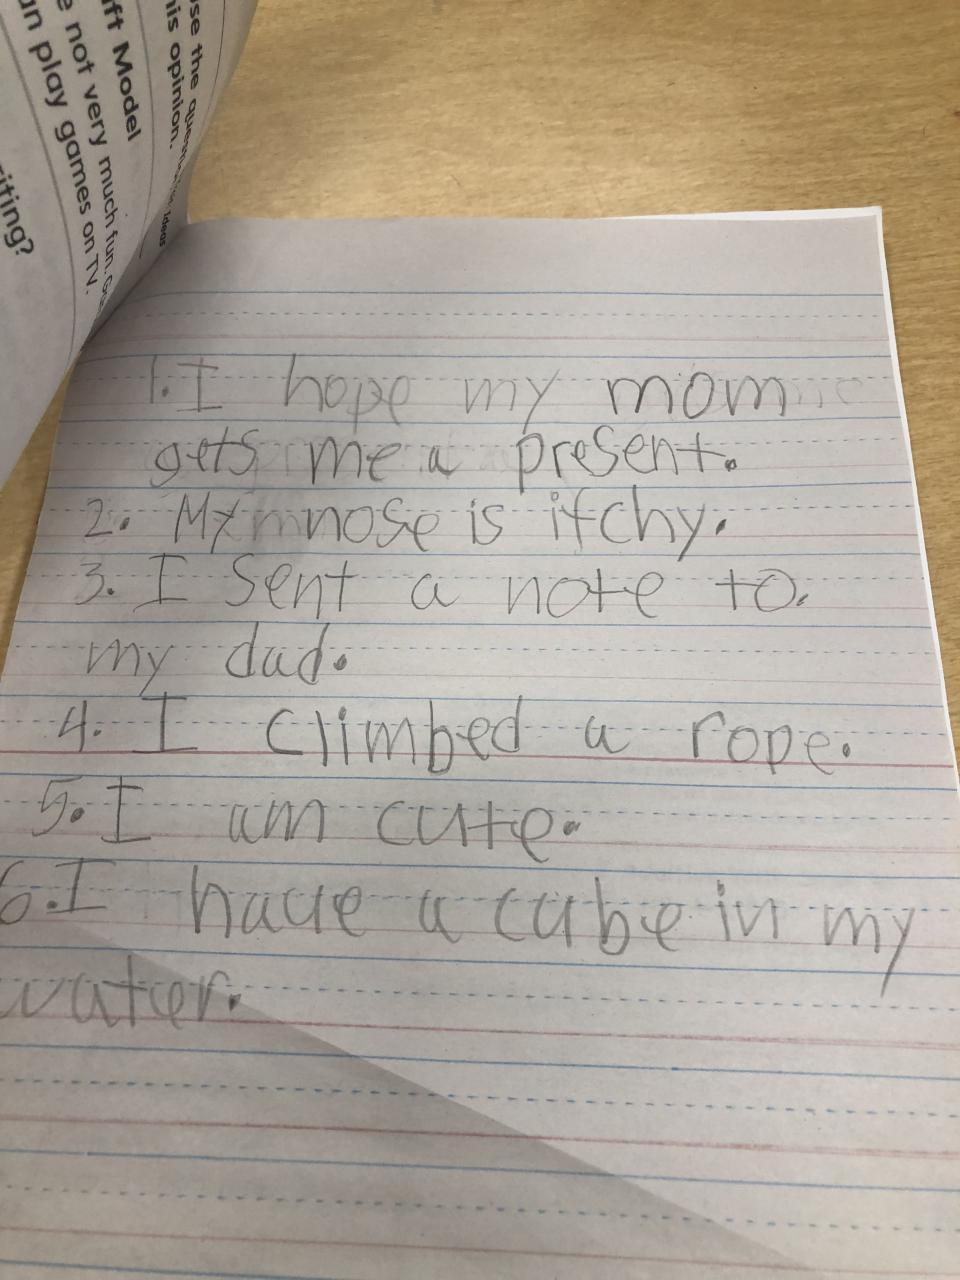 se the ques
his opinion.
Ideas
ft Model
e not very much fun.
an play games on TV.
riting?
1. I hope my mom
gets me a present.
2. My nose is itchy.
3. I sent a note to.
my dad.
4. I climbed a rope.
5. I am cute.
6. I have a cube in my
water.